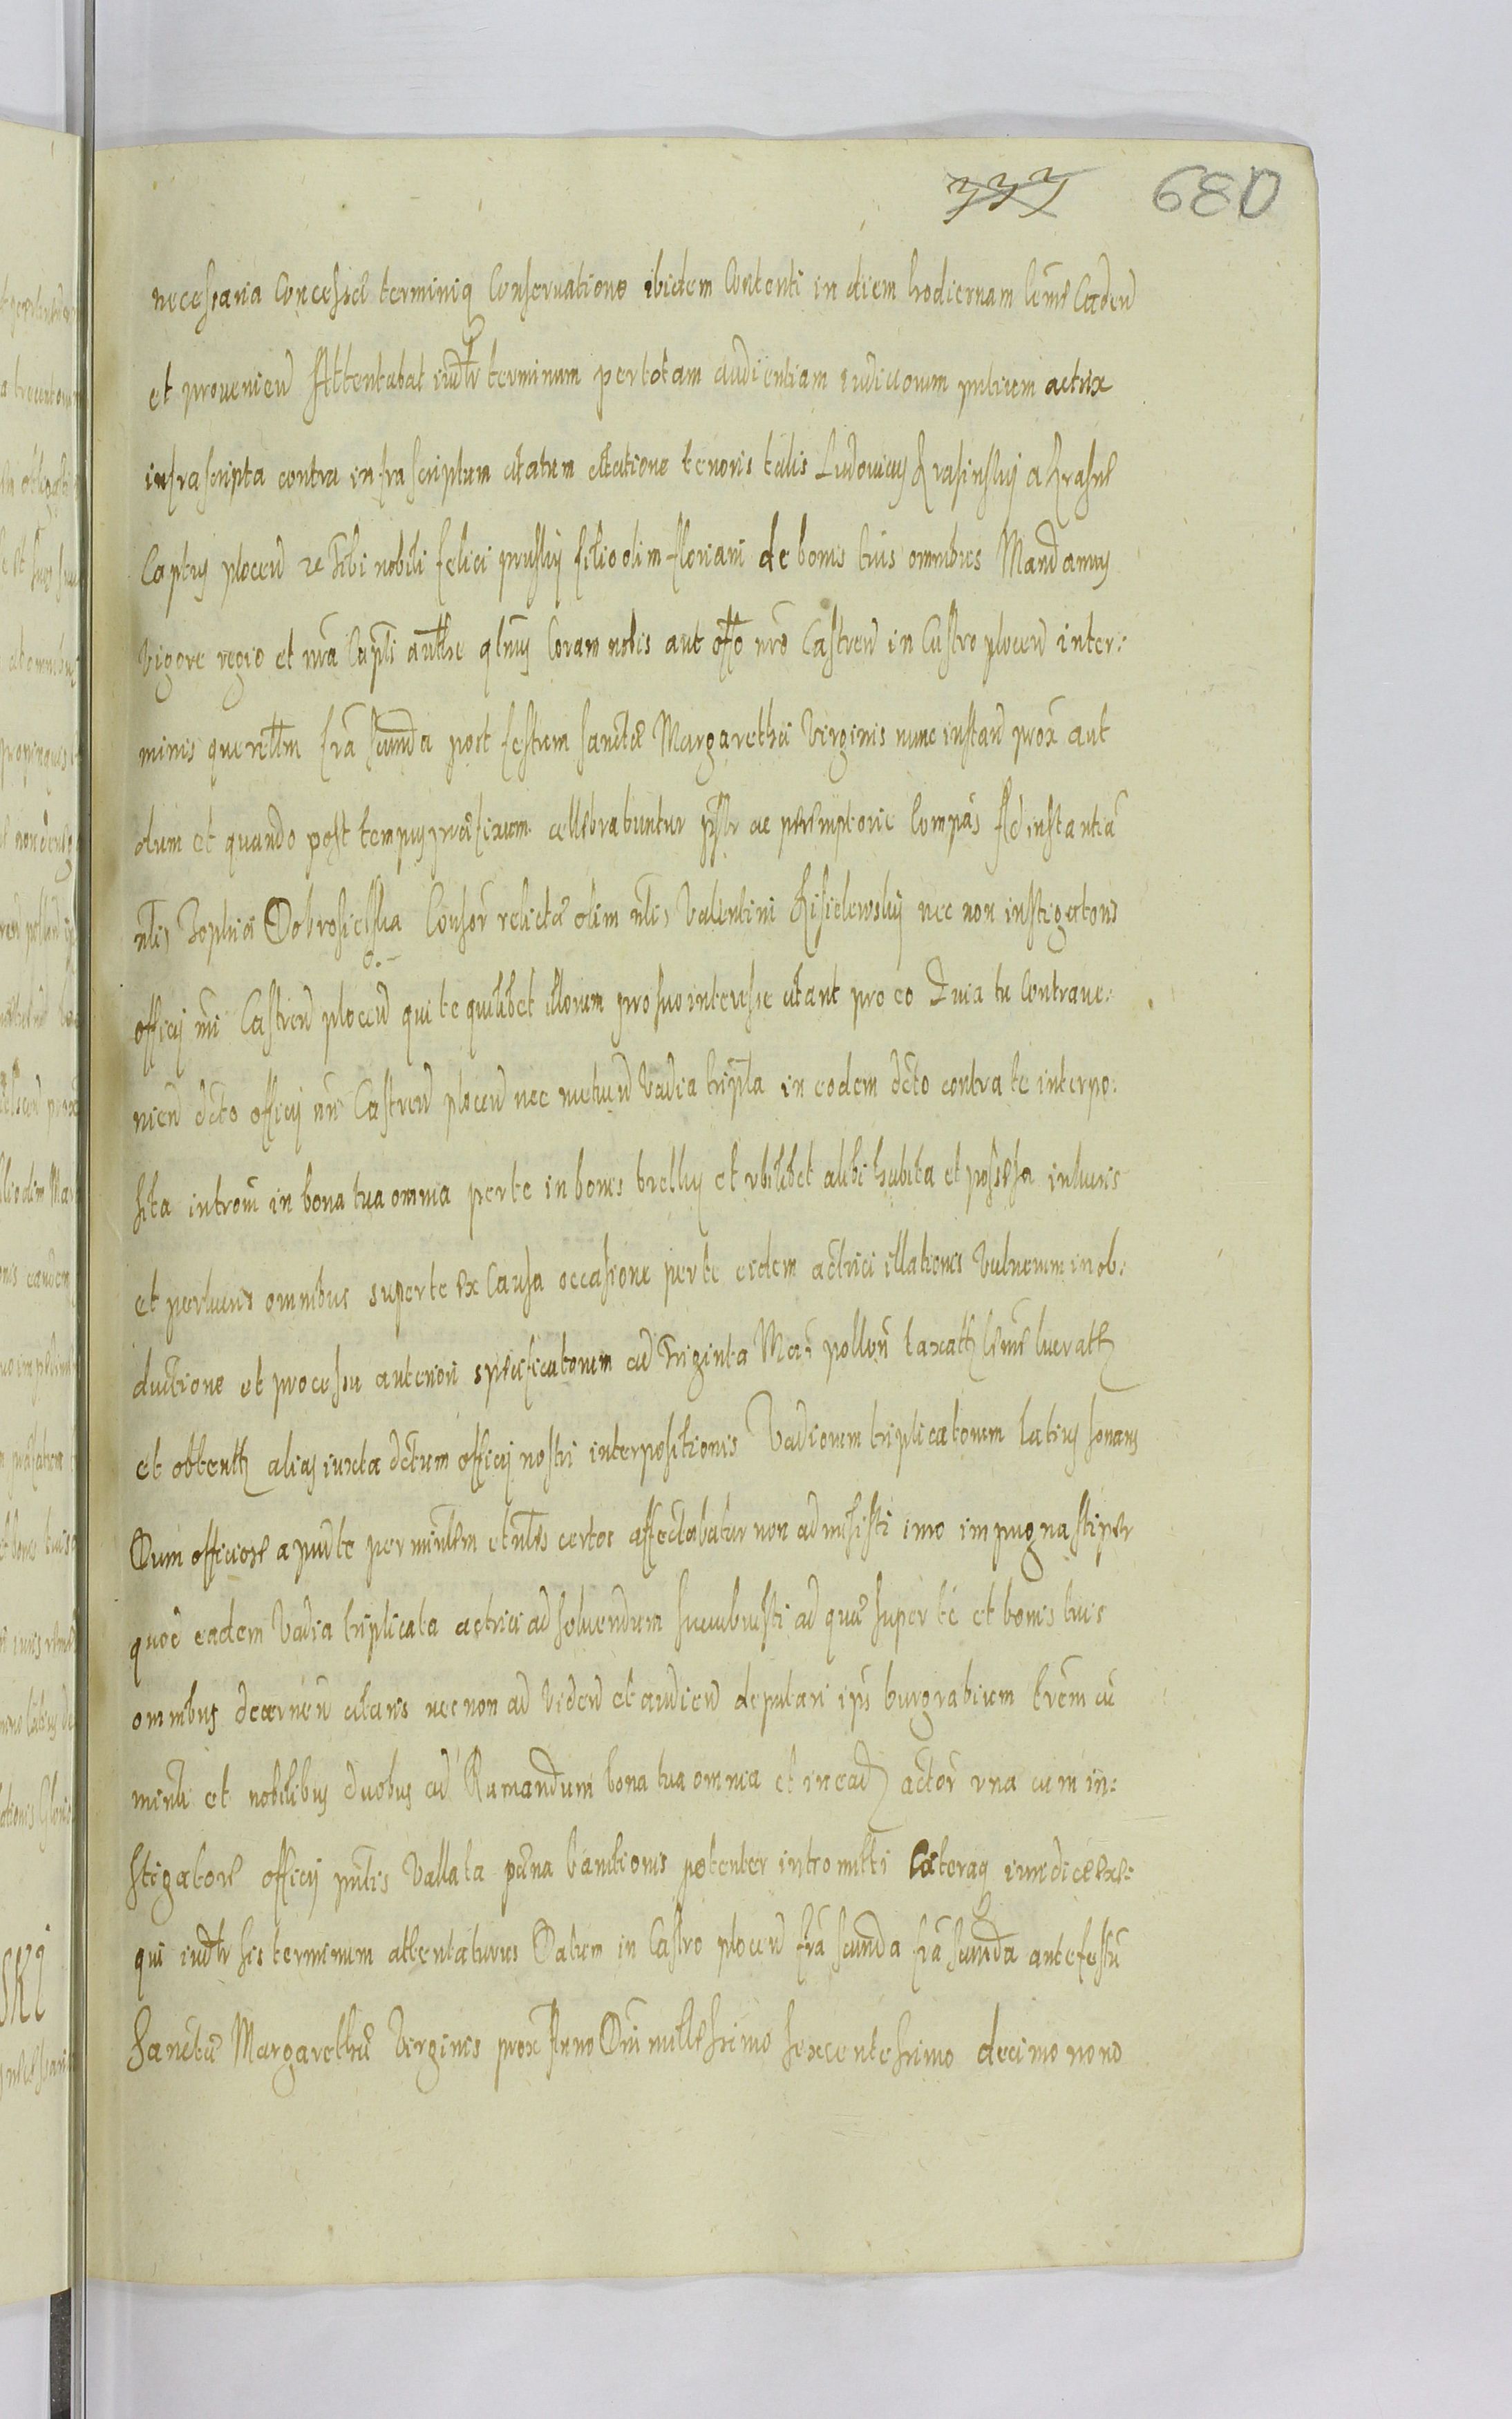 680
necessaria Concessa terminiq Conservatione ibidem Contenti in diem hodiernam leme Caden
et provenien Attentabat iudtr terminum per totam audientiam iudiciorum pntium actrix
infrascripta contra infrascriptum citatum citatione tenoris talis Ludovicus Krasinskij a Krasne
Captus plocen &c Tibi nobili felici pruskij filio olim floriani de bonis tuis omnibus Mandamus
vigore regio et nra Capti authe qtnus Coram nobis aut offo nro Castren in Castro plocen inter:
minis querellm fra secunda post festum sanctæ Margarethæ Virginis nunc instan prox aut
dum et quando post tempus præfixum cellebrabuntur pslr ac peremptorie Compas Ad instantia
nlis Zophiæ Dobrosielska Consor relictæ olim nlis Valentini Kisielewskij nec non instigatoris
officij nri Castren plocen qui te quilibet illorum pro suo interesse citant pro eo Quia tu Contrave:
nien dcto officij nri Castren plocen nec metuen Vadia tripla in eodem dcto contra te interpo:
sita introm in bona tua omnia per te in bonis brelky et ubilibet alibi habita et possessa in luris
et per lucris omnibus super te ex Causa occasione per te eidem actrici illationis Vulnerum in ob:
ductione et processu anteriori specificatorum ad Triginta Mar pollon taxath leme lucrath
et obtenth alias iuxta dctum officij nostri interpositionis Vadiorum triplicatorum latius sonans
Dum officiose apud te per minlem et nles certos affectabatur non admisisti imo impugnasti per
quoe eadem Vadia triplicata actrici ad solvendum succubuisti ad quæ super te et bonis tuis
omnibus decernen citaris nec non ad viden et audien deputari ips burgrabium trem cu
minli et nobilibus duobus ad Rumandum bona tua omnia et in ead actor una cum in:
stigatore officij pntis Vallata pæna bannitionis potenter intromitti Cæteraq iuridice exe:
qui iudtr sis terminum attentaturus Datum in Castro plocen fra scunda fra scunda ante festu
Sanctæ Margarethæ Virginis prox Anno Dni millessimo sexcentessimo decimo nono